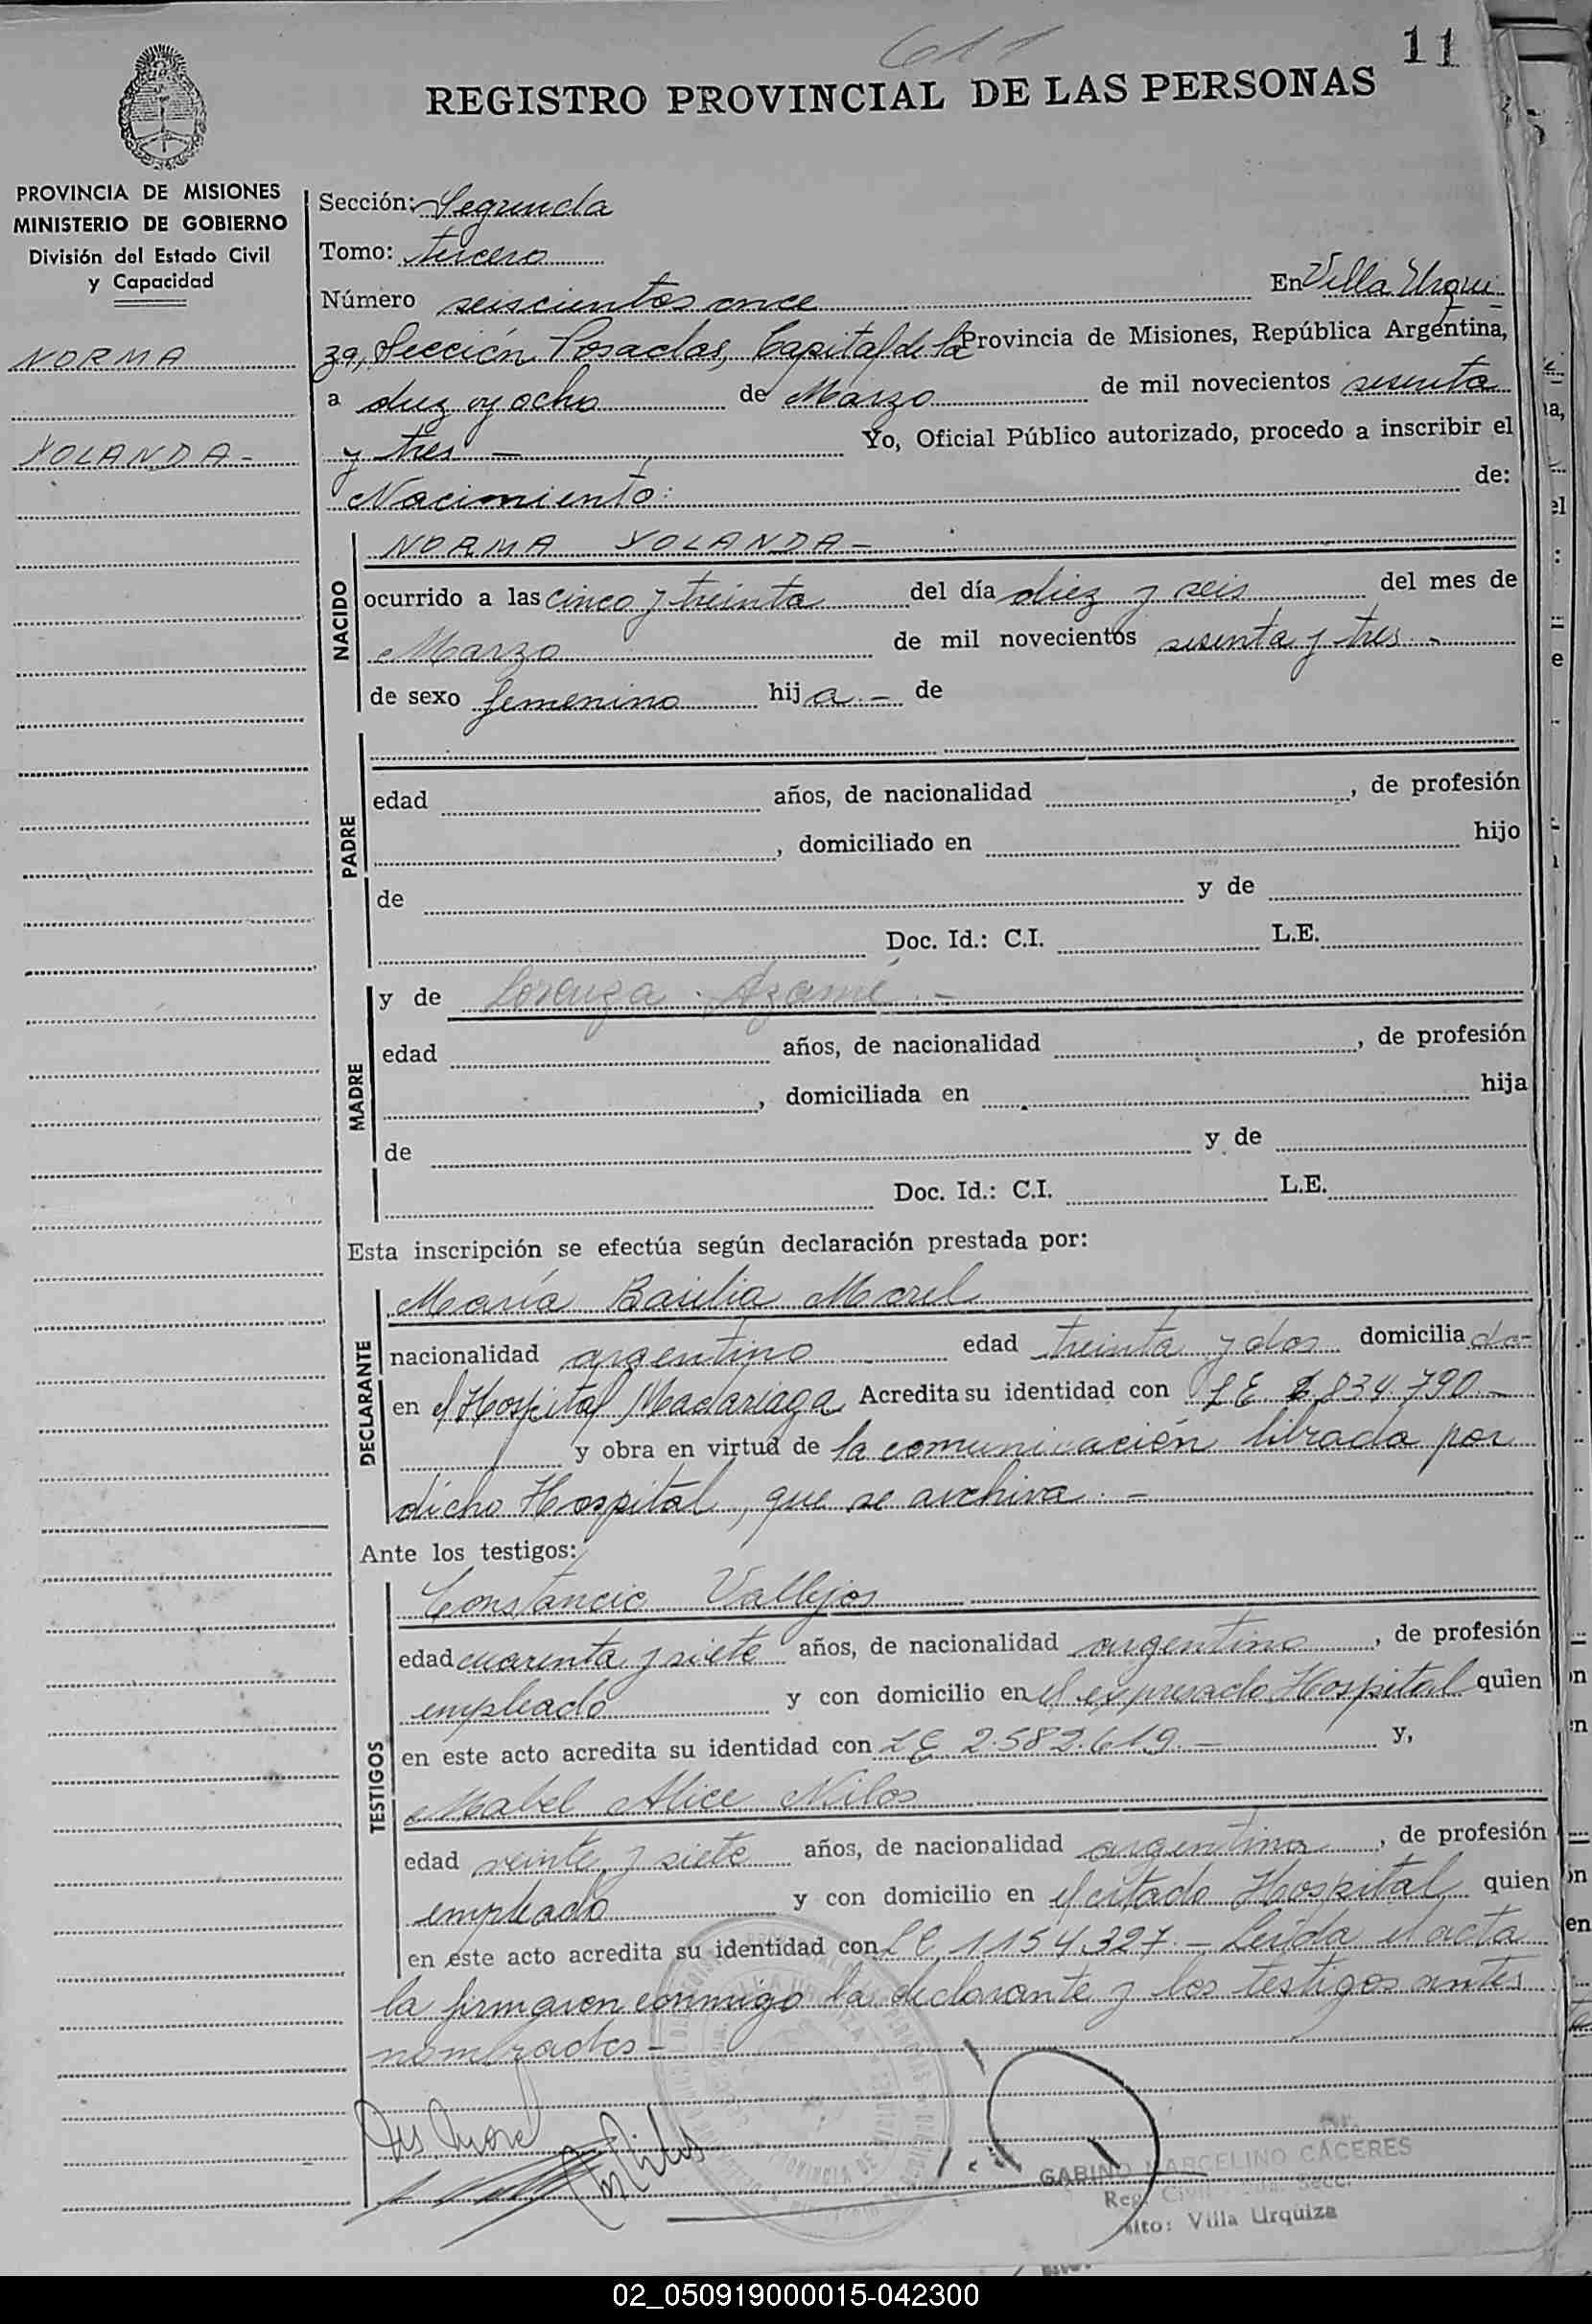 611
11
REGISTRO PROVINCIAL DE LAS PERSONAS
PROVINCIA DE MISIONES
MINISTERIO DE GOBIERNO
División del Estado Civil
y Capacidad
NORMA
YOLANDA -
Sección: Segunda
Tomo: tercero
Número seiscientos once En Villa Urqui-
za, Sección Posadas, Capital de la Provincia de Misiones, República Argentina,
a diez y ocho de Marzo de mil novecientos sesenta
y tres - Yo, Oficial Público autorizado, procedo a inscribir el
Nacimiento: de:
NACIDO
NORMA YOLANDA -
ocurrido a las cinco y treinta del día diez y seis del mes de
Marzo de mil novecientos sesenta y tres -
de sexo femenino hija - de
PADRE
edad años, de nacionalidad , de profesión
, domiciliado en hijo
de y de
Doc. Id.: C.I. L.E.
MADRE
y de Lorenza Azamé -
edad años, de nacionalidad , de profesión
, domiciliada en hija
de y de
Doc. Id.: C.I. L.E.
Esta inscripción se efectúa según declaración prestada por:
DECLARANTE
María Basilia Morel
nacionalidad argentina edad treinta y dos domiciliada-
en el Hospital Madariaga Acredita su identidad con 834.790 -
y obra en virtud de la comunicación librada por
dicho Hospital, que se archiva. -
Ante los testigos:
TESTIGOS
Constancio Vallejos
edad cuarenta y siete años, de nacionalidad argentino, de profesión
empleado y con domicilio en el expresado Hospital quien
en este acto acredita su identidad con LE 2.582.619 - y,
Mabel Alice Nilos
edad veinte y siete años, de nacionalidad argentina, de profesión
empleada y con domicilio en el citado Hospital quien
en este acto acredita su identidad con LC 1154.327. - Leída el acta
la firmaron conmigo la declarante y los testigos antes
nombrados -
GABINO MARCELINO CACERES
Reg. Civil Secc.
Villa Urquiza
02_050919000015-042300